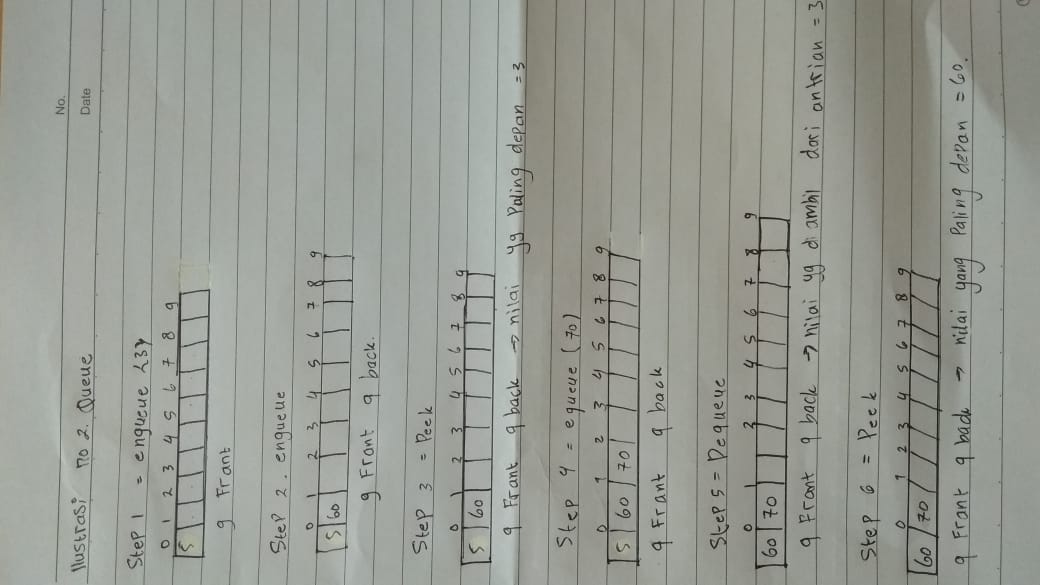 No.
Date
Ilustrasi no 2. Queue
Step 1 = enqueue <3>
0 1 2 3 4 5 6 7 8 9
5
q Frant
Step 2. enqueue
0 1 2 3 4 5 6 7 8 9
5 60
q Front q back.
Step 3 = Peek
0 1 2 3 4 5 6 7 8 9
5 60
q Frant q back → nilai yg Paling depan = 3
Step 4 = equeue (70)
0 1 2 3 4 5 6 7 8 9
5 60 70
q Frant q back
Step 5 = Dequeue
0 1 2 3 4 5 6 7 8 9
60 70
q Front q back → nilai yg di ambil dari antrian = 3
Step 6 = Peek
0 1 2 3 4 5 6 7 8 9
60 70
q Frant q back → nilai yang Paling depan = 60.